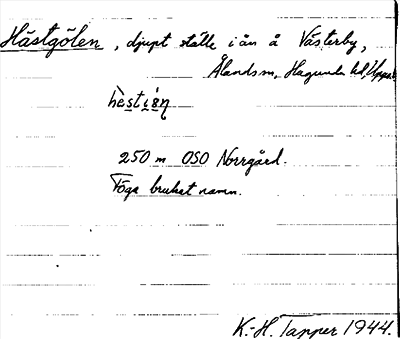 Hästgölen, djupt ställe i ån å Västerby,
Ålands sn, Hagunda hd, Uppsala
250 m OSO Norrgård.
Föga brukat namn.
K.-H. Tapper 1944.